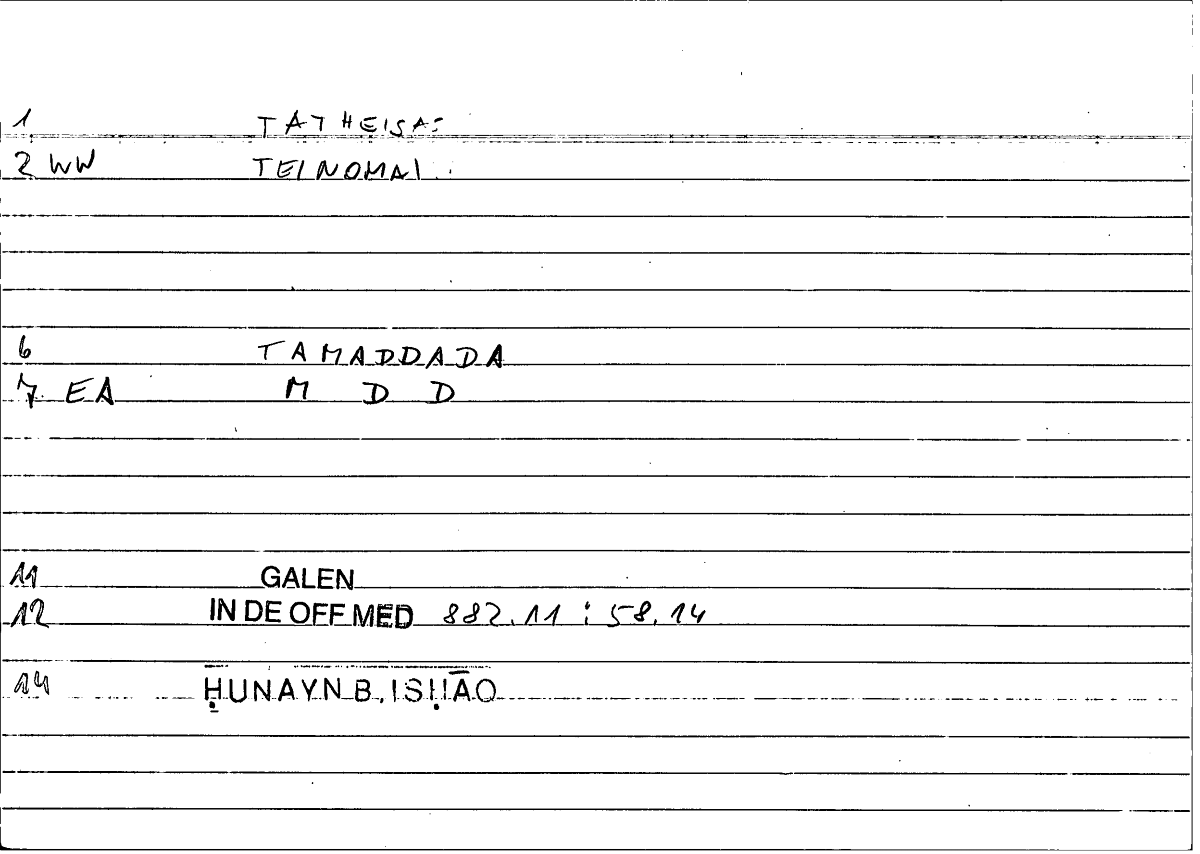 1 TATHEISA:
2 WW TEINOMAI :
6 TAMADDADA
7 EA M D D
11 GALEN
12 IN DE OFF MED 882.11 : 58.14
14 ḤUNAYN B. ISḤĀQ